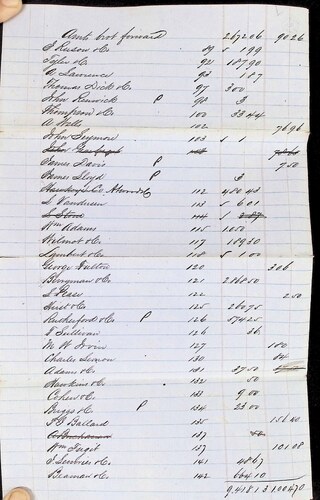 Amts brot forward 267206 9026
J. Rason & Co 89 5 199
Tyler & Co 92 18790
A Lawrence 93 187
Thomas Dick & Co 97 300
John Renwick P 98 3
Thompson & Co 100 3344
A Wells 102 7696
John Seymour 103 5 1
James Davis P 750
James Lloyd P 3
Co. Atwood & Co 112 48043
S Vanduzen 113 5 601
S Stone 114 5
Wm Adams 115 1050
Wilmot & Co 117 18930
Lambert & Co 118 5 100
George Fulton 120 306
Bergman & Co 121 216050
S Hass 122 250
Hurst & Co 125 26075
Rutherford & Co P 126 57025
T Sullivan 126 36
M W Irvin 127 100
Charles Simon 130 84
Adam & Co 131 3750
Hawkins & Co 132 50
Cohen & Co 133 900
Briggs & Co P 134 2300
J J Ballard 135 15640
137
Wm Fugit 137 10108
J. Scribner & Co 141 4867
Beaman & Co 142 66410
9,4181 3,100470